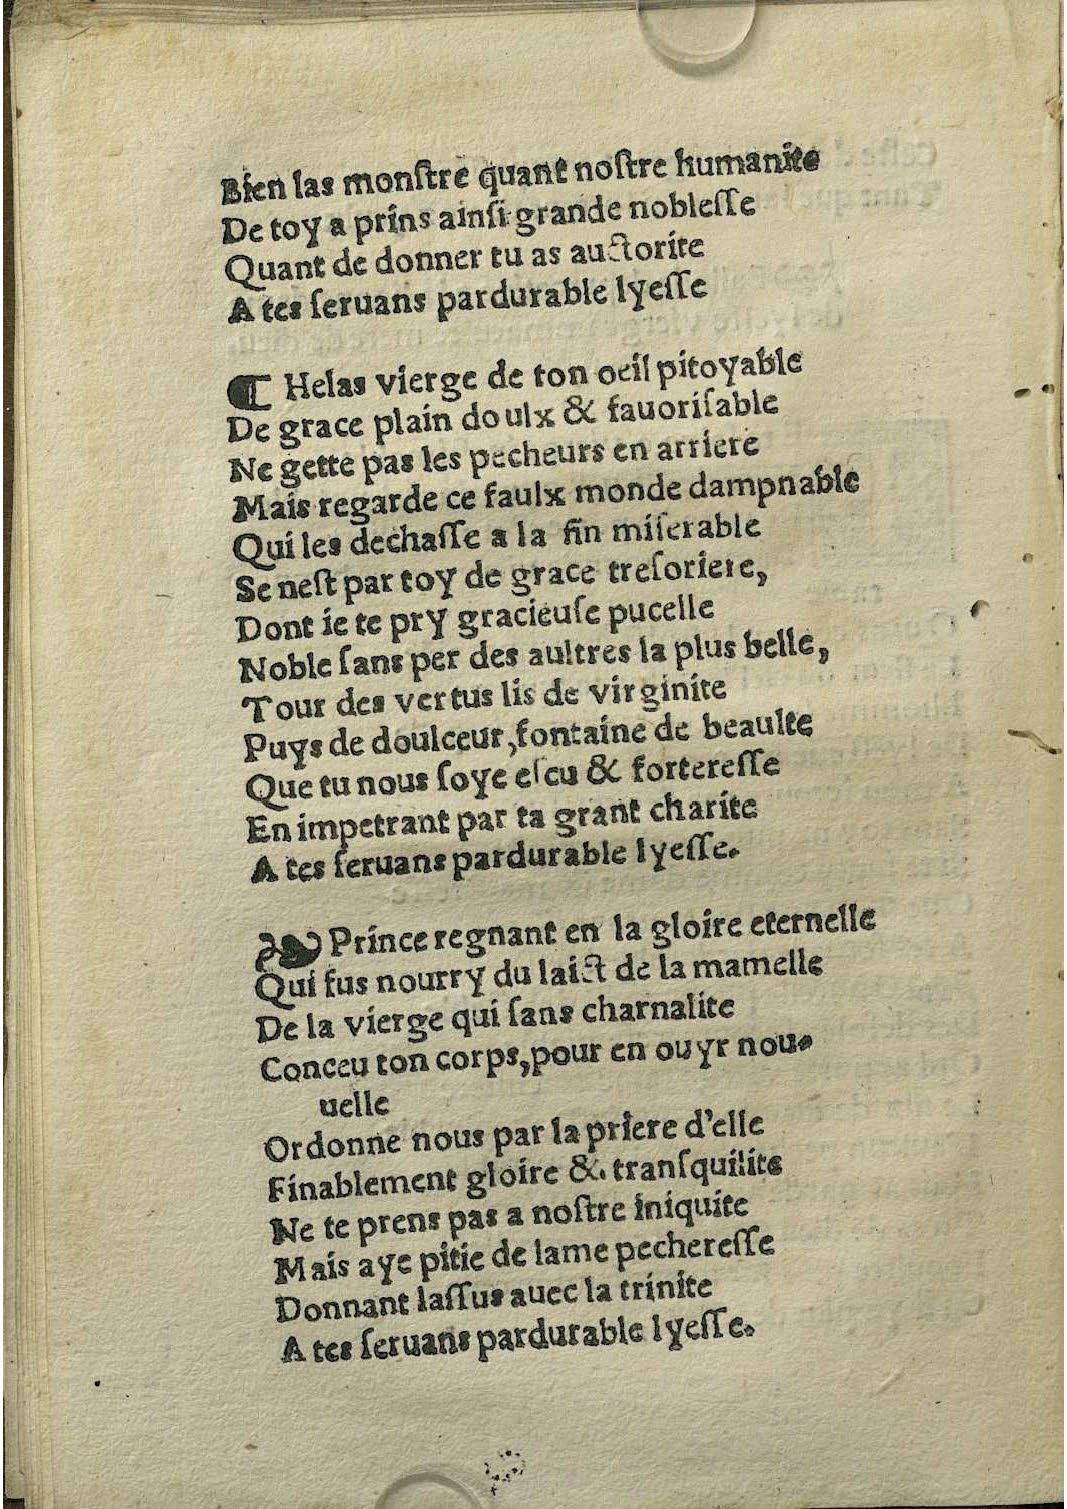 Bien las monſtre quant noſtre humanite
De toy a prins ainſi grande nobleſſe
Quant de donner tu as auctorite
A tes ſeruans pardurable lyeſſe

¶ Helas vierge de ton oeil pitoyable
De grace plain doulx & fauoriſable
Ne gette pas les pecheurs en arriere
Mais regarde ce faulx monde dampnable
Qui les dechaſſe a la fin miſerable
Se neſt par toy de grace treſoriere,
Dont ie te pry gracieuſe pucelle
Noble ſans per des aultres la plus belle,
Tour des vertus lis de virginite
Puys de doulceur,fontaine de beaulte
Que tu nous ſoye eſcu & fortereſſe
En impetrant par ta grant charite
A tes ſeruans pardurable lyeſſe.

❧ Prince regnant en la gloire eternelle
Qui fus nourry du laict de la mamelle
De la vierge qui ſans charnalite
Conceu ton corps,pour en ouyr nou-
uelle
Ordonne nous par la priere d'elle
Finablement gloire &. tranſquilite
Ne te prens pas a noſtre iniquite
Mais aye pitie de lame pechereſſe
Donnant laſſus auec la trinite
A tes ſeruans pardurable lyeſſe.